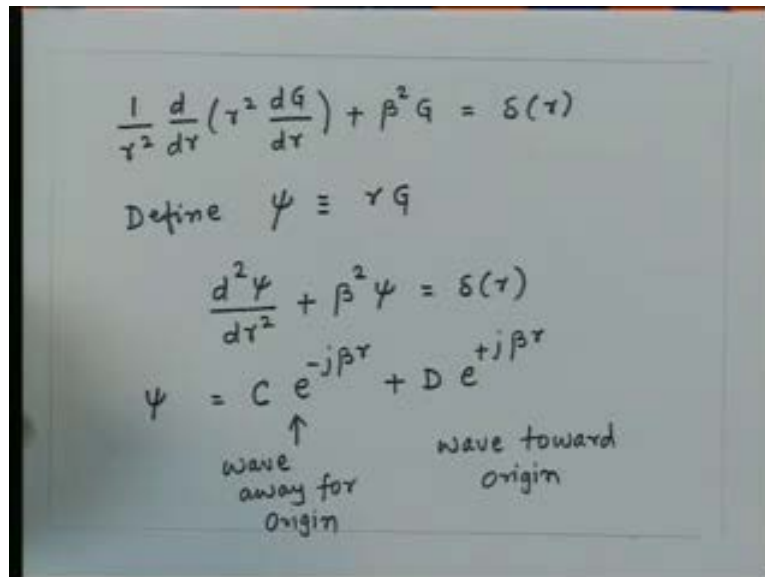 1/r² d/dr (r² dG/dr) + β²G = δ(r)
Define ψ ≡ rG
d²ψ/dr² + β²ψ = δ(r)
ψ = C e^{-jβr} + D e^{+jβr}
↑
wave away for origin
wave toward origin